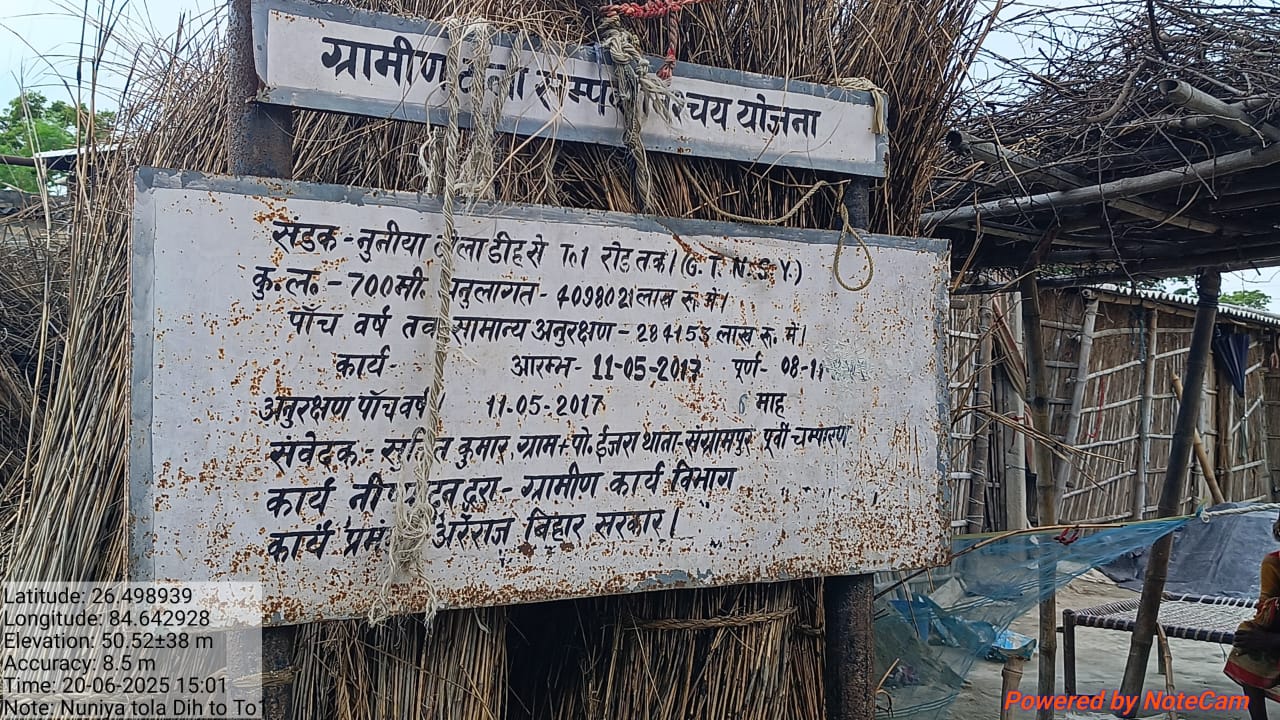 ग्रामीण टोला सम्पर्क निश्चय योजना
सडक - नुनीया टोला डीह से To1 रोड तक। (G. T. N. S. Y.)
कु. ल. - 700मी. अनुलागत - 409802 लाख रू. में।
पाँच वर्ष तक सामान्य अनुरक्षण - 284153 लाख रू. में।
कार्य - आरम्भ - 11-05-2017 पूर्ण - 08-11
अनुरक्षण पाँच वर्ष 11-05-2017 6 माह
संवेदक - कुमार, ग्राम + पो. ईजरा थाना - संग्रामपुर, पूर्वी चम्पारण
कार्य द्वरा - ग्रामीण कार्य विभाग
कार्य प्रमं अरेराज बिहार सरकार।
Latitude: 26.498939
Longitude: 84.642928
Elevation: 50.52±38 m
Accuracy: 8.5 m
Time: 20-06-2025 15:01
Note: Nuniya tola Dih to To1
Powered by NoteCam